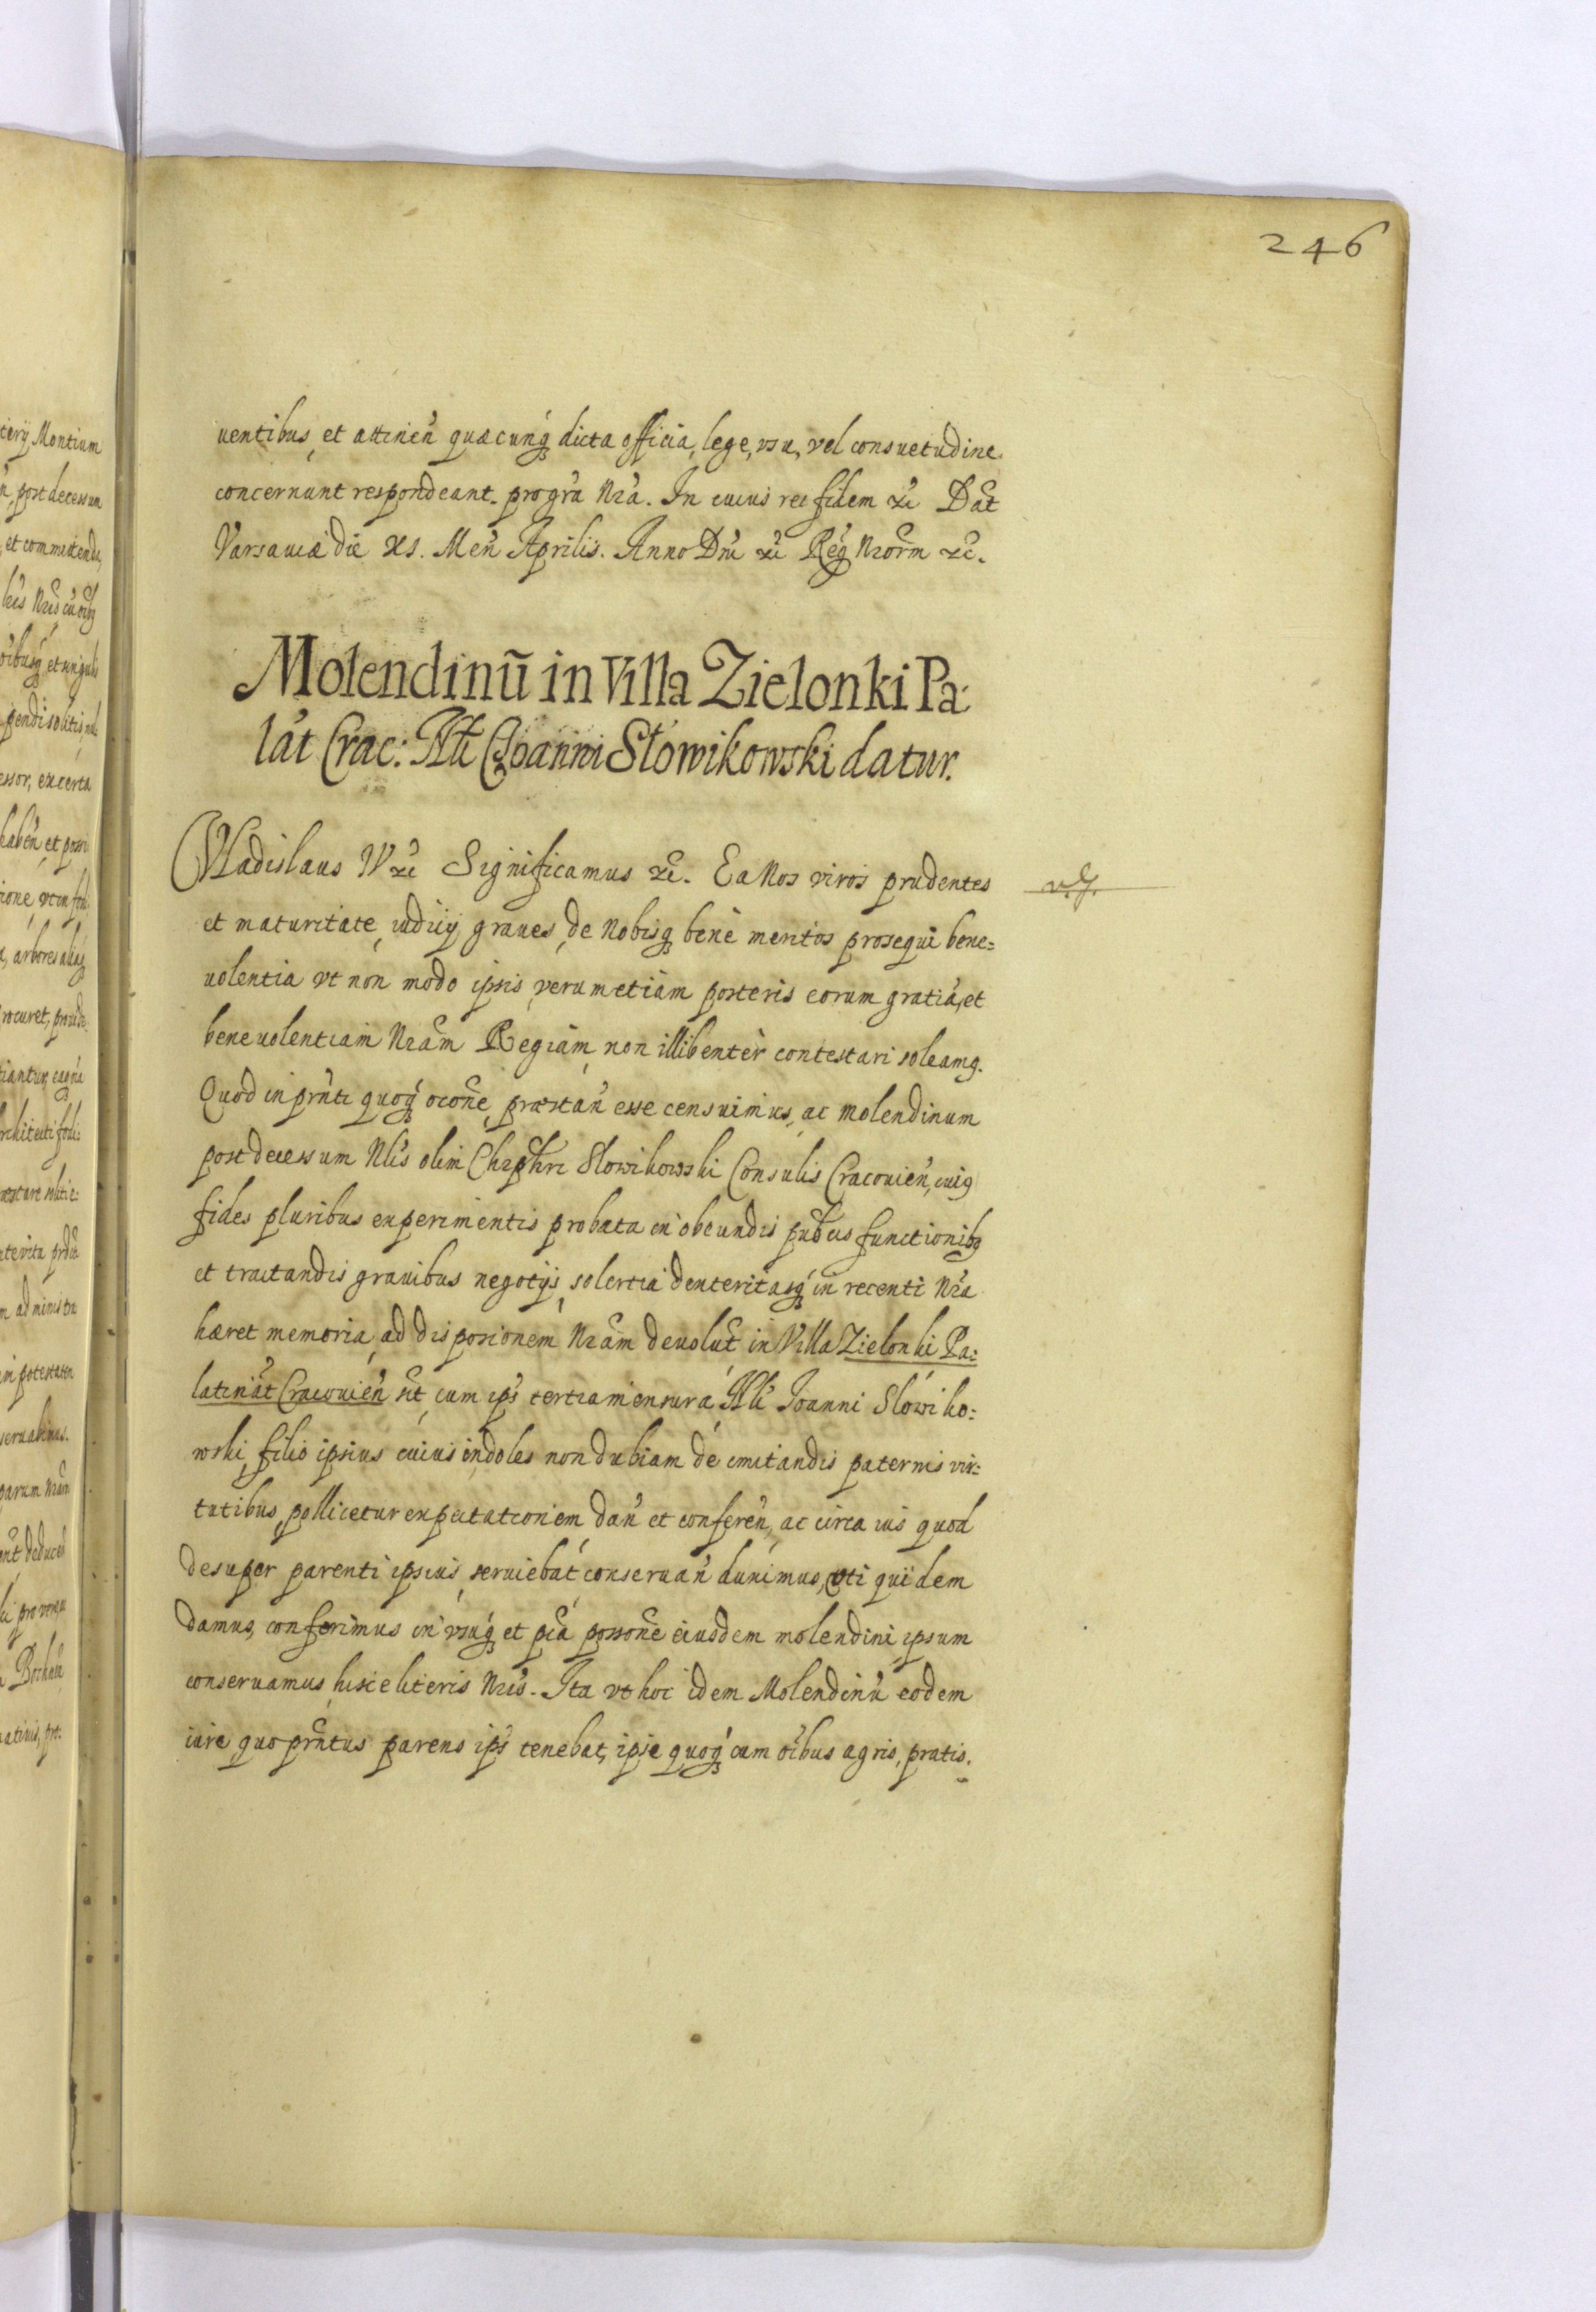 246
uentibus, et attineñ quæcunq dicta officia, lege, vsu, vel consuetudine
concernunt respondeant. pro gr̃a Nr̃a. In cuius rei fidem &c̃ Dat̃
Varsauiæ die XI. Meñ Aprilis. Anno Dñi &c̃ Reg̃ Nror̃m &c̃.
Molendinū in Villa Zielonki Pa:
lat̃ Crac: Nl̃i Joanni Słowikowski datur.
Vladislaus IV &c̃ Significamus &c̃. Ea Nos viros prudentes
et maturitate iudicij graues, de Nobisq bene meritos prosequi bene=
uolentia vt non modo ipsis verumetiam posteris eorum gratiã, et
beneuolentiam Nr̃am Regiam non illibenter contestari soleamq.
Quod in pr̃nti quoq occõne præstañ esse censuimus, ac molendinum
post decessum Nl̃is olim Chrp̃hri Słowikowski Consulis Cracouieñ, cuiq
fides pluribus experimentis probata in obeundis pub̃cis functionibq
et tractandis grauibus negotijs, solertia dexteritasq in recenti Nr̃a
hæret memoria, ad disposionem Nr̃am deuolut̃ in Villa Zielonki Pa:
latinat̃ Cracouieñ sit̃ cum ips̃ tertia mensura Nl̃i Joanni Słowiko:
wski, filio ipsius cuius indoles non dubiam de imitandis paternis vir:
tutibus pollicetur expectationem dañ et confereñ, ac circa ius quod
desuper parenti ipsius seruiebat conseruañ duximus, vti quidem
damus, conferimus in vsuq et p̃ca possoñe eiusdem molendini ipsum
conseruamus hisce literis Nr̃is. Ita vt hoc idem Molendinũ eodem
iure quo pr̃ntus parens ips̃ tenebat, ipse quoq cum oĩbus agris, pratis.